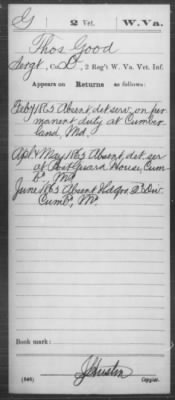 G 2 Vet. W. Va.
Thos Good
Sergt, Co. D, 2 Reg't W. Va. Vet. Inf.
Appears on Returns as follows:
Feby 1865 Absent det. serv. on per
manent duty at Cumber
land, Md.
Apl & May 1865 Absent, det. ser
at Post Guard House, Cum
Md.
June 1865 Absent Hdqrs. 2d Div
Cumb, Md.
Book mark:
J Huston
(546) Copyist.